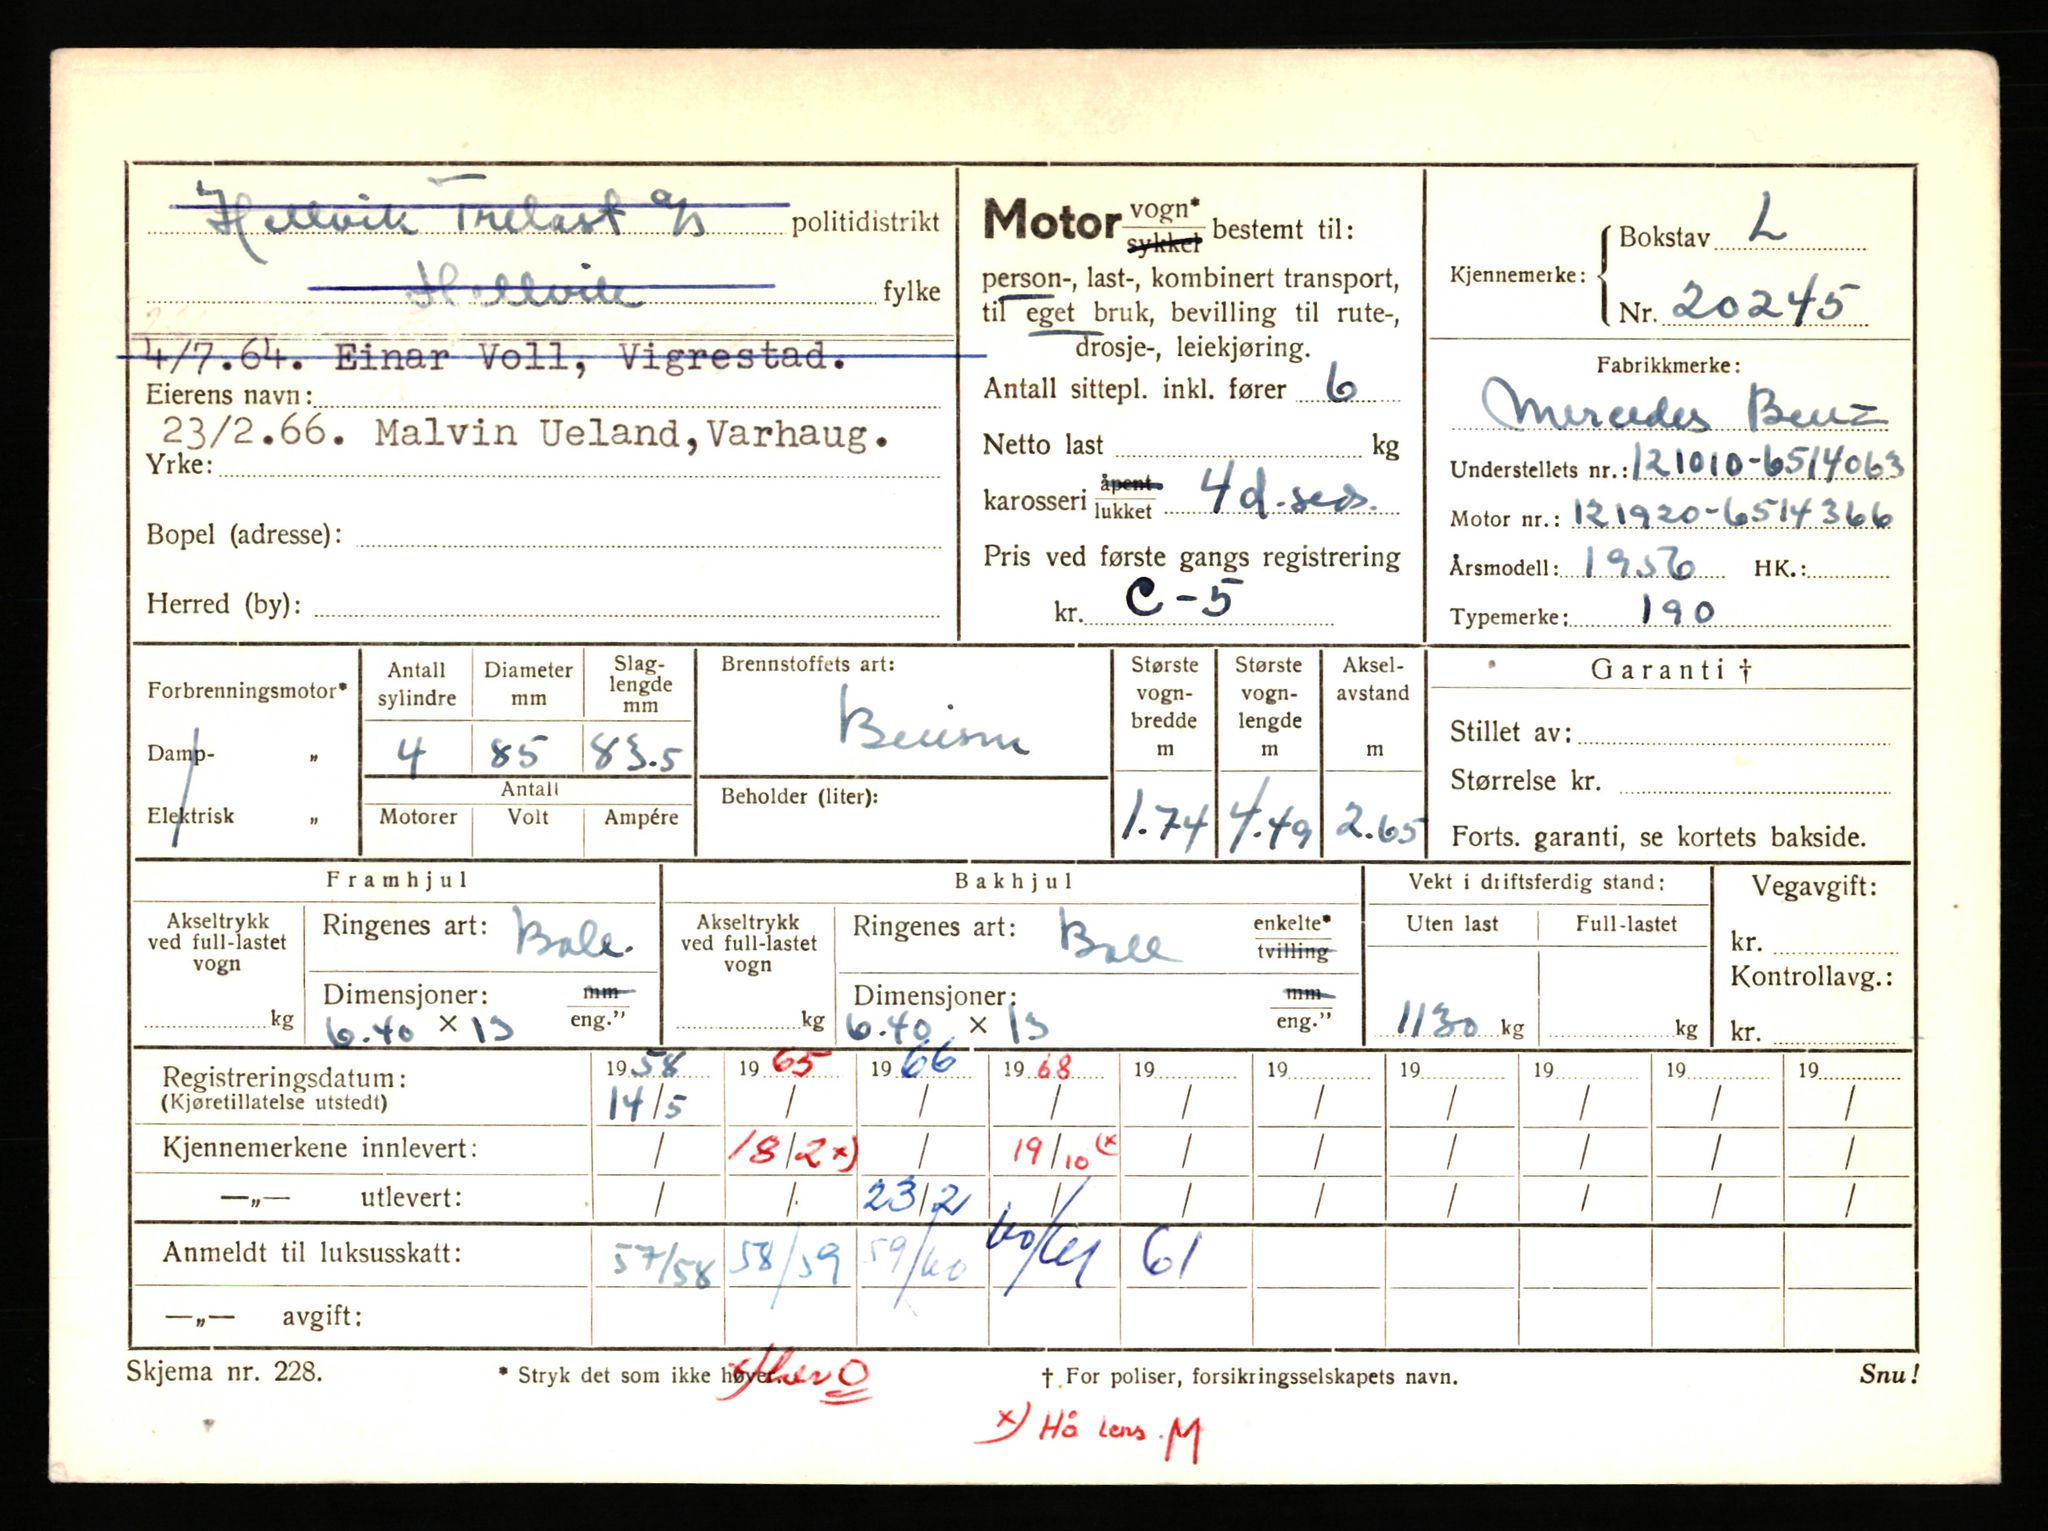 Hellvik Trelast a/s politidistrikt
Hellvik fylke
4/7.64. Einar Voll, Vigrestad.
Eierens navn:
23/2.66. Malvin Ueland, Varhaug.
Yrke:
Bopel (adresse):
Herred (by):
Motor vogn* sykkel bestemt til:
person-, last-, kombinert transport,
til eget bruk, bevilling til rute-,
drosje-, leiekjøring.
Antall sittepl. inkl. fører 6
Netto last kg
karosseri åpent lukket 4 d. sed.
Pris ved første gangs registrering
kr. C-5
Kjennemerke: Bokstav L
Nr. 20245
Fabrikkmerke:
Mercedes Benz
Understellets nr.: 121010-6514063
Motor nr.: 121920-6514366
Årsmodell: 1956 HK.:
Typemerke: 190
Forbrenningsmotor*
Damp- „
Elektrisk „
Antall sylindre Diameter mm Slag-lengde mm
4 85 83.5
Antall
Motorer Volt Ampére
Brennstoffets art:
Bensin
Beholder (liter):
Største vogn-bredde m Største vogn-lengde m Aksel-avstand m
1.74 4.49 2.65
Garanti †
Stillet av:
Størrelse kr.
Forts. garanti, se kortets bakside.
Framhjul
Akseltrykk ved full-lastet vogn
kg
Ringenes art: Ball.
Dimensjoner: mm eng.”
6.40 × 13
Bakhjul
Akseltrykk ved full-lastet vogn
kg
Ringenes art: Ball enkelte* tvilling
Dimensjoner: mm eng.”
6.40 × 13
Vekt i driftsferdig stand:
Uten last Full-lastet
1130 kg kg
Vegavgift:
kr.
Kontrollavg.:
kr.
Registreringsdatum: 1958 1965 1966 1968 19 19 19 19 19 19
(Kjøretillatelse utstedt) 14/5 / / / / / / / / /
Kjennemerkene innlevert: / 18/2 x) / 19/10 (x / / / / / /
—„— utlevert: / / 23/2 / / / / / / /
Anmeldt til luksusskatt: 57/58 58/59 59/60 60/61 61
—„— avgift:
Skjema nr. 228. * Stryk det som ikke høver. † For poliser, forsikringsselskapets navn. Snu!
x) Hå lens. M